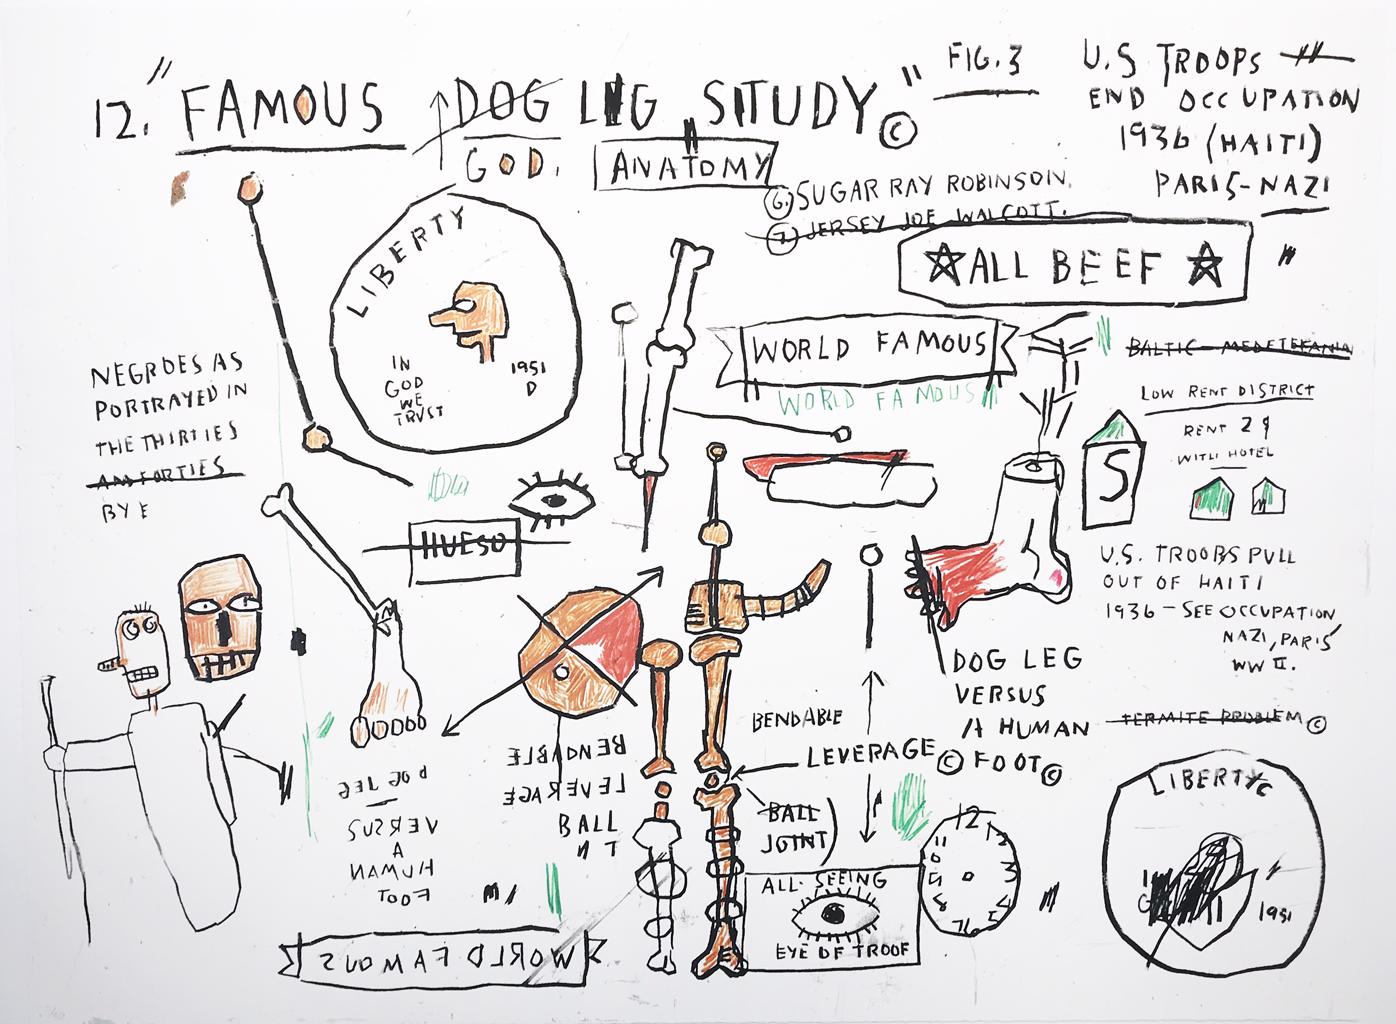 12. "FAMOUS DOG LEG STUDY" ©
GOD. ANATOMY
FIG. 3
U.S TROOPS
END OCCUPATION
1936 (HAITI)
PARIS-NAZI
6. SUGAR RAY ROBINSON.
7. JERSEY JOE WALCOTT.
☆ALL BEEF☆
LIBERTY
IN
GOD
WE
TRUST
1951
D
WORLD FAMOUS
WORLD FAMOUS
NEGROES AS
PORTRAYED IN
THE THIRTIES
AN FORTIES
BY E
HUESO
LOW RENT DISTRICT
RENT 2¢
WITH HOTEL
S
U.S. TROOPS PULL
OUT OF HAITI
1936 - SEE OCCUPATION
NAZI, PARIS
WW II.
TERMITE PROBLEM ©
DOG LEG
VERSUS
A HUMAN
FOOT ©
BENDABLE
LEVERAGE ©
BALL
JOINT)
BENDABLE
LEVERAGE
BALL
DOG LEG
VERSUS
A
HUMAN
FOOT
WORLD FAMOUS
ALL-SEEING
EYE OF TROOF
12
LIBERTY
1951